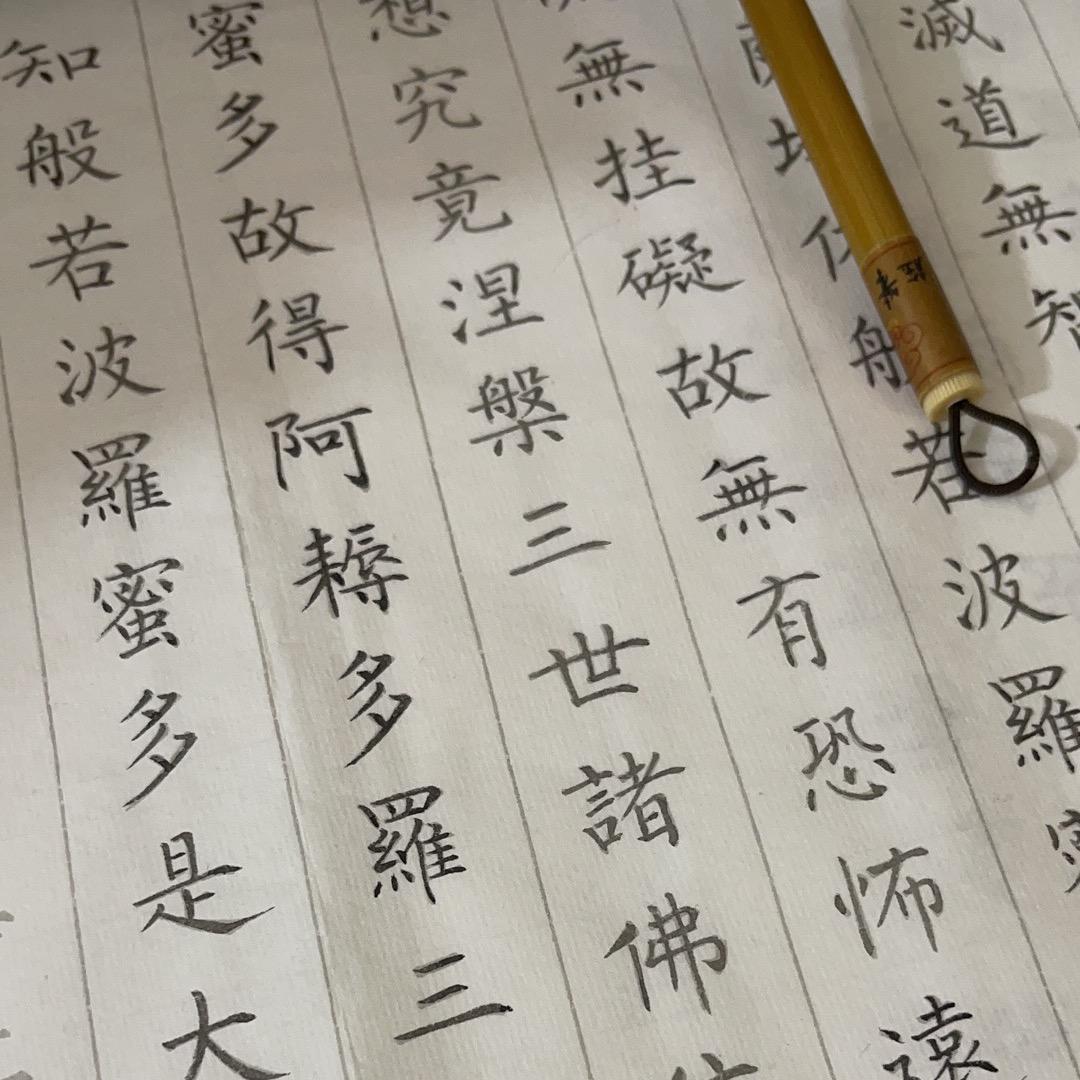 滅道無智
般若波羅
無挂礙故無有恐怖遠
想究竟涅槃三世諸佛
蜜多故得阿耨多羅三
知般若波羅蜜多是大